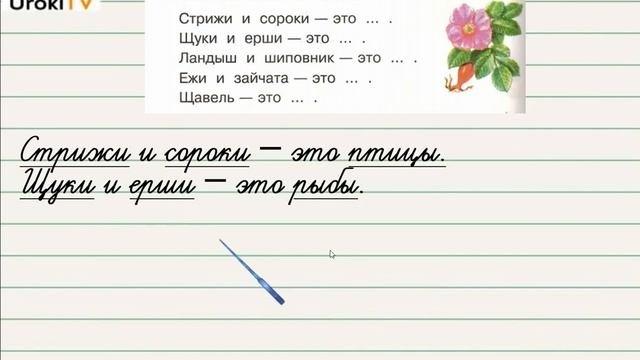 UrokiTV
Стрижи и сороки — это ... .
Щуки и ерши — это ... .
Ландыш и шиповник — это ... .
Ежи и зайчата — это ... .
Щавель — это ... .
Стрижи и сороки – это птицы.
Щуки и ерши – это рыбы.